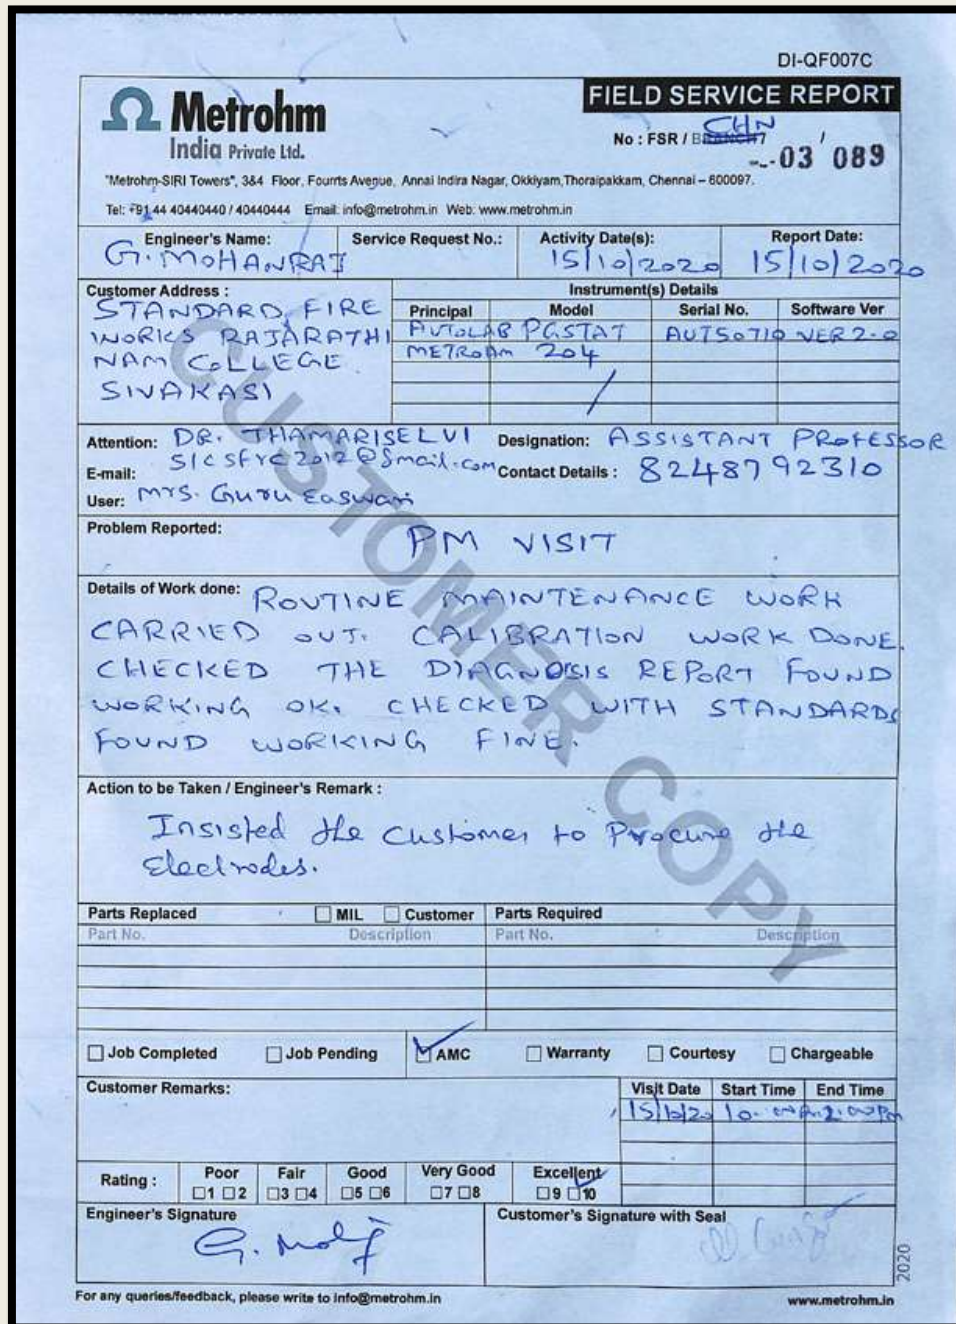 DI-QF007C
Metrohm
India Private Ltd.
FIELD SERVICE REPORT
No : FSR / BRANCH / CHN /
03 089
"Metrohm-SIRI Towers", 3&4 Floor, Fourrts Avenue, Annai Indira Nagar, Okkiyam,Thoraipakkam, Chennai – 600097.
Tel: +91 44 40440440 / 40440444 Email: info@metrohm.in Web: www.metrohm.in
Engineer's Name: Service Request No.: Activity Date(s): Report Date:
G. MOHANRAJ 15/10/2020 15/10/2020
Customer Address :
STANDARD FIRE
WORKS RAJARATHI
NAM COLLEGE
SIVAKASI
Instrument(s) Details
Principal Model Serial No. Software Ver
AUTOLAB PGSTAT VER 2.0
METROHM 204
Attention: DR. THAMARISELVI Designation: ASSISTANT PROFESSOR
E-mail: Contact Details : 8248792310
User: Mrs. Guru Easwari
Problem Reported: PM VISIT
Details of Work done: ROUTINE MAINTENANCE WORK
CARRIED OUT. CALIBRATION WORK DONE.
CHECKED THE DIAGNOSIS REPORT FOUND
WORKING OK. CHECKED WITH STANDARDS
FOUND WORKING FINE.
Action to be Taken / Engineer's Remark :
Insisted the Customer to Procure the
Electrodes.
Parts Replaced MIL Customer Parts Required
Part No. Description Part No. Description
Job Completed Job Pending AMC Warranty Courtesy Chargeable
Customer Remarks: Visit Date Start Time End Time
15/10/20
Rating : Poor Fair Good Very Good Excellent
1 2 3 4 5 6 7 8 9 10
Engineer's Signature Customer's Signature with Seal
2020
For any queries/feedback, please write to info@metrohm.in www.metrohm.in
CUSTOMER COPY